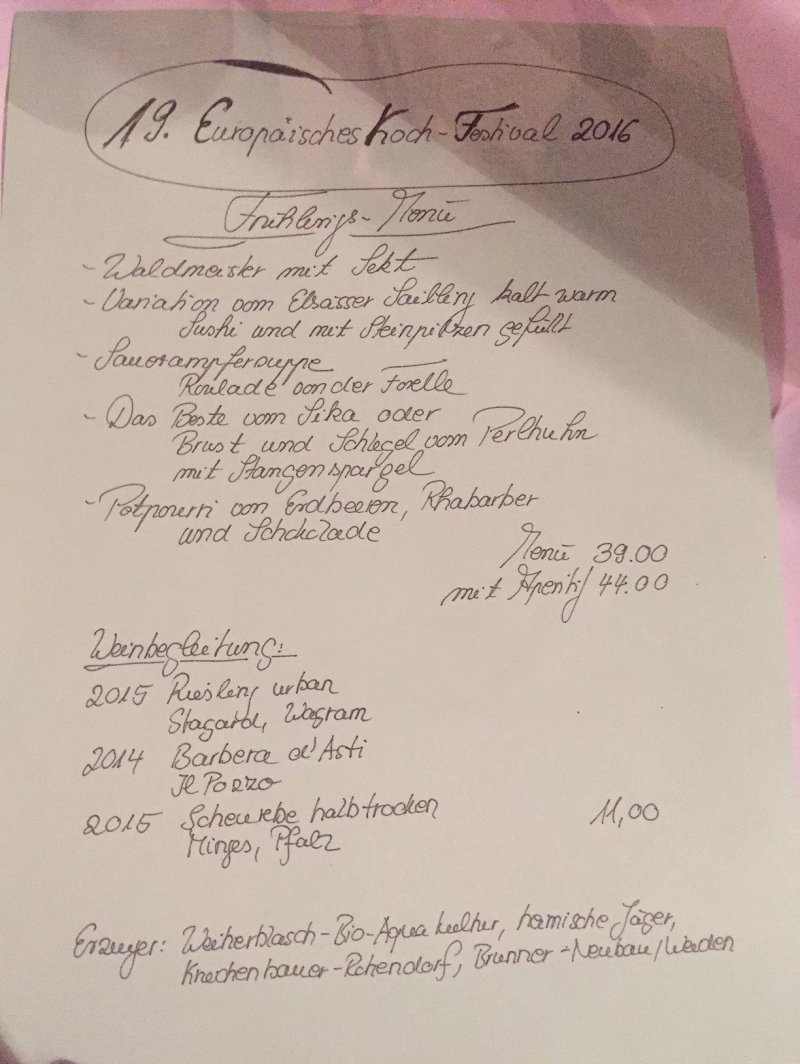 19. Europäisches Koch-Festival 2016
Frühlings-Menü
- Waldmeister mit Sekt
- Variation vom Elsässer Saibling kalt warm
Sushi und mit Steinpilzen gefüllt
- Sauerampfersuppe
Roulade von der Forelle
- Das Beste vom Sika oder
Brust und Schlegel vom Perlhuhn
mit Stangenspargel
- Potpourri von Erdbeeren, Rhabarber
und Schokolade
Menü 39.00
mit Aperitif 44.00
Weinbegleitung:
2015 Riesling urban
Stagard, Wagram
2014 Barbera d'Asti
Il Pozzo
2015 Scheurebe halbtrocken 11,00
Minges, Pfalz
Erzeuger: Bio-Aqua kultur, heimische Jäger,
Brunner-Neubau/Weiden